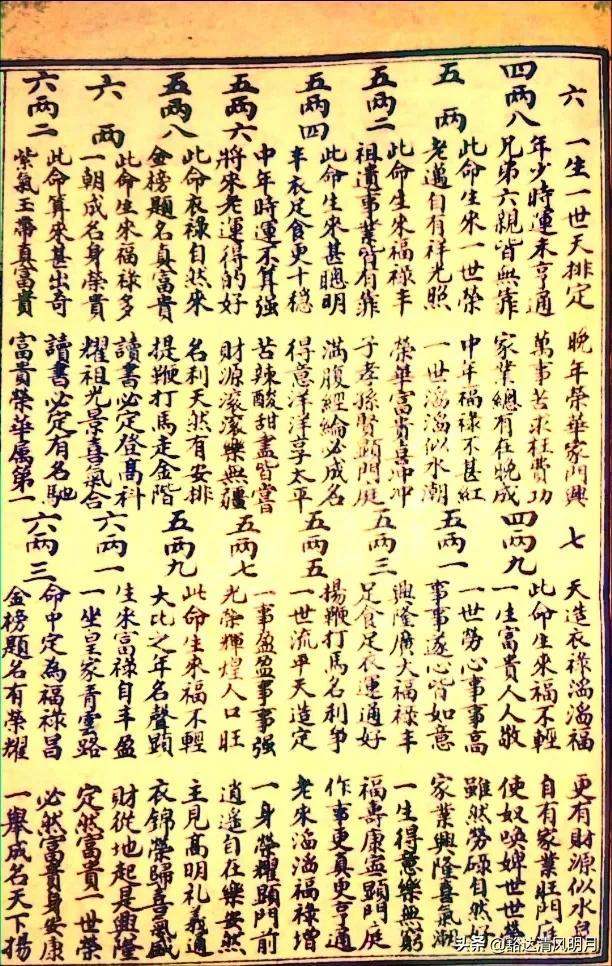 六
一生一世天排定 晚年榮華家門興
四兩八
年少時運未亨通 萬事苦求枉費功
兄弟六親皆無靠 家業總有在晚成
五兩
此命生來一世榮 中年福祿不甚紅
老邁自有祥光照 一世滔滔似水潮
五兩二
此命生來福祿丰 榮華富貴喜沖沖
祖遺事業皆有靠 子孝孫賢顯門庭
五兩四
此命生來甚聰明 滿腹經綸必成名
丰衣足食更十穩 得意洋洋享太平
五兩六
中年時運不算强 苦辣酸甜盡皆嘗
將來老運得的好 財源滾滾樂無疆
五兩八
此命衣祿自然來 名利天然有安排
金榜題名真富貴 提鞭打馬走金階
六兩
此命生來福祿多 讀書必定登高科
一朝成名身榮貴 耀祖光景喜氣合
六兩二
此命算來甚出奇 讀書必定有名馳
紫氣玉帶真富貴 富貴榮華屬第一
七
天造衣祿滔滔福 更有財源似水泉
四兩九
此命生來福不輕 自有家業旺門庭
一生富貴人人敬 使奴喚婢世世榮
五兩一
一世勞心事事高 雖然勞碌自然好
事事遂心皆如意 家業興隆喜氣潮
五兩三
興隆廣大福祿丰 一生得意樂無窮
足食足衣運通好 福壽康寧顯門庭
五兩五
揚鞭打馬名利爭 作事更真更亨通
一世流平天造定 老來滔滔福祿增
五兩七
一事盈盈事事强 一身榮耀顯門前
光榮輝煌人口旺 逍遙自在樂安然
五兩九
此命生來福不輕 主見高明礼義通
大比之年名聲顯 衣錦榮歸喜氣盛
六兩一
生來富祿自丰盈 財從地起是興隆
一坐皇家青雲路 定然富貴一世榮
六兩三
命中定為福祿昌 必然富貴身安康
金榜題名有榮耀 一舉成名天下揚
头条 @豁达清风明月